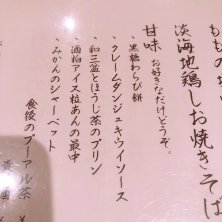 ももの
淡海地鶏しお焼きそば
甘味 お好きなだけどうぞ。
・黒糖わらび餅
・クレームダンジュキウイソース
・和三盆とほうじ茶のプリン
・酒粕アイス粒あんの最中
・みかんのシャーベット
食後のプーアル茶